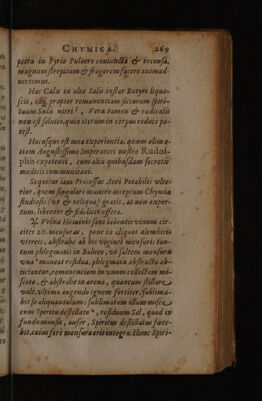 CHYMICA. 269
petra in Pyrio Pulvere coniuncta & incensa,
magnum strepitum & fragorem facere animad-
vertimus.
Hac Calx in oleo Salis instar Butyri lique-
scit, idq́; propter remanentiam siccorum spiri-
tuum Salis nitri: Vera tamen & radicalis
non est solutio, quia iterum in corpus redact po-
test.
Hucusque est mea experientia, quam olim e-
tiam Augustissimo Imperatori nostro Rudol-
pho expetenti, cum aliis quibusdam secretis
medicis communicavi.
Sequitur iam Processus Auri Potabilis ulte-
rior, quem singulari munere acceptum Chymia
studiosis (ut & reliqua) gratis, at non exper-
tum, libenter & fideliter offero.
℞ Vrina Hominis sani bibentis vinum cir-
citer 20. mensuras, pone in aliquot alembicis
vitreis, abstrahe ab his viginti mensuris tan-
tum phlegmatis in Balneo, ut saltem mensura
una maneat residua, phlegmata abstracta ab-
iiciantur, remanentiam in unum collectam mi-
sceto, & abstrahe in arena, quantum stillare
vult, ultimo augendo ignem fortiter, sublima-
bit se aliquantulum: sublimatum illum misce
cum Spiritu destillato, residuum Sal, quod in
fundo mansit, aufer, Spiritus destillatus fœte-
bit, cuius fere mensura erit integra: Hunc Spiri-